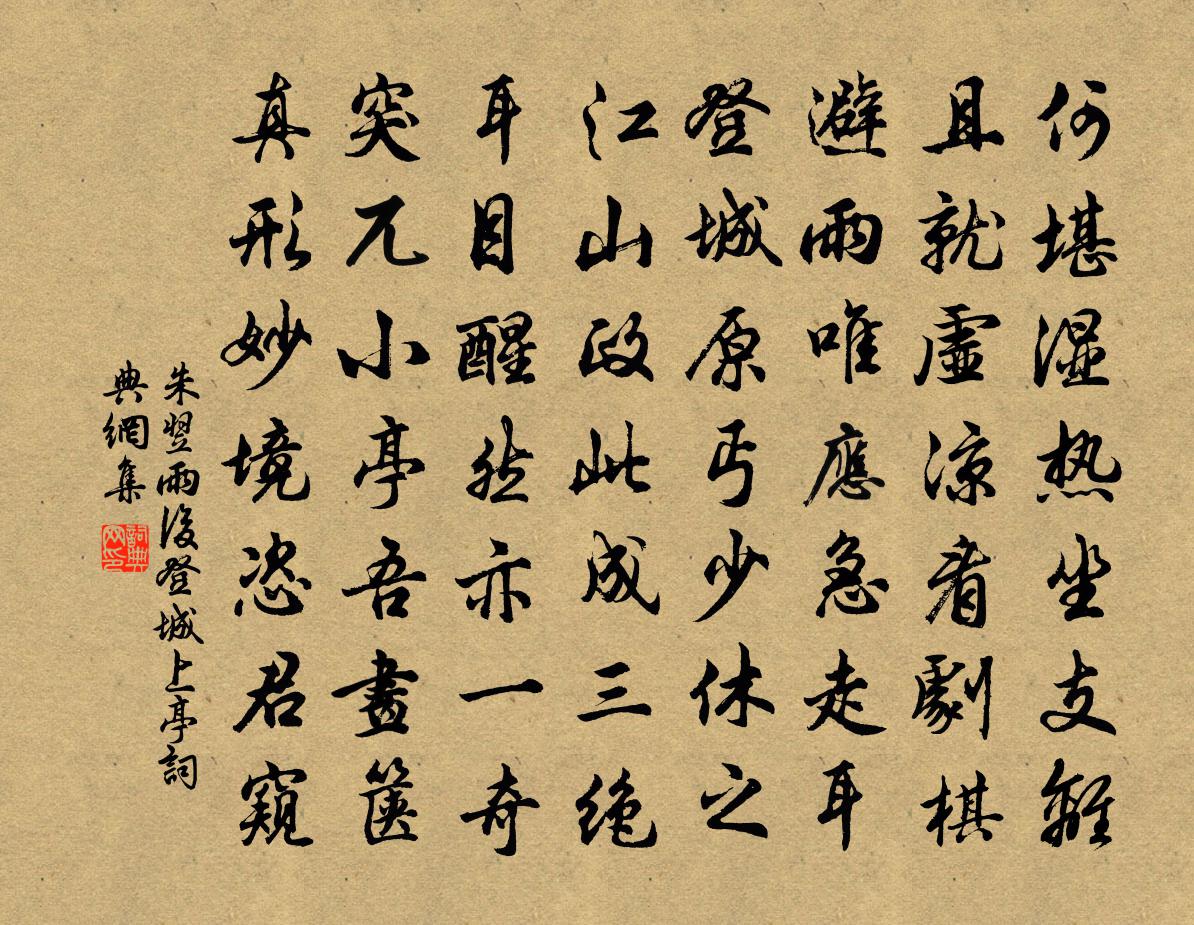 何堪湿热坐支離
且就虛涼看劇棋
避雨唯應急走耳
登城原丐少休之
江山政此成三绝
耳目醒然亦一奇
突兀小亭吾畫篋
真形妙境恣君窺
朱翌雨後登城上亭詞
典網集
詞典网印